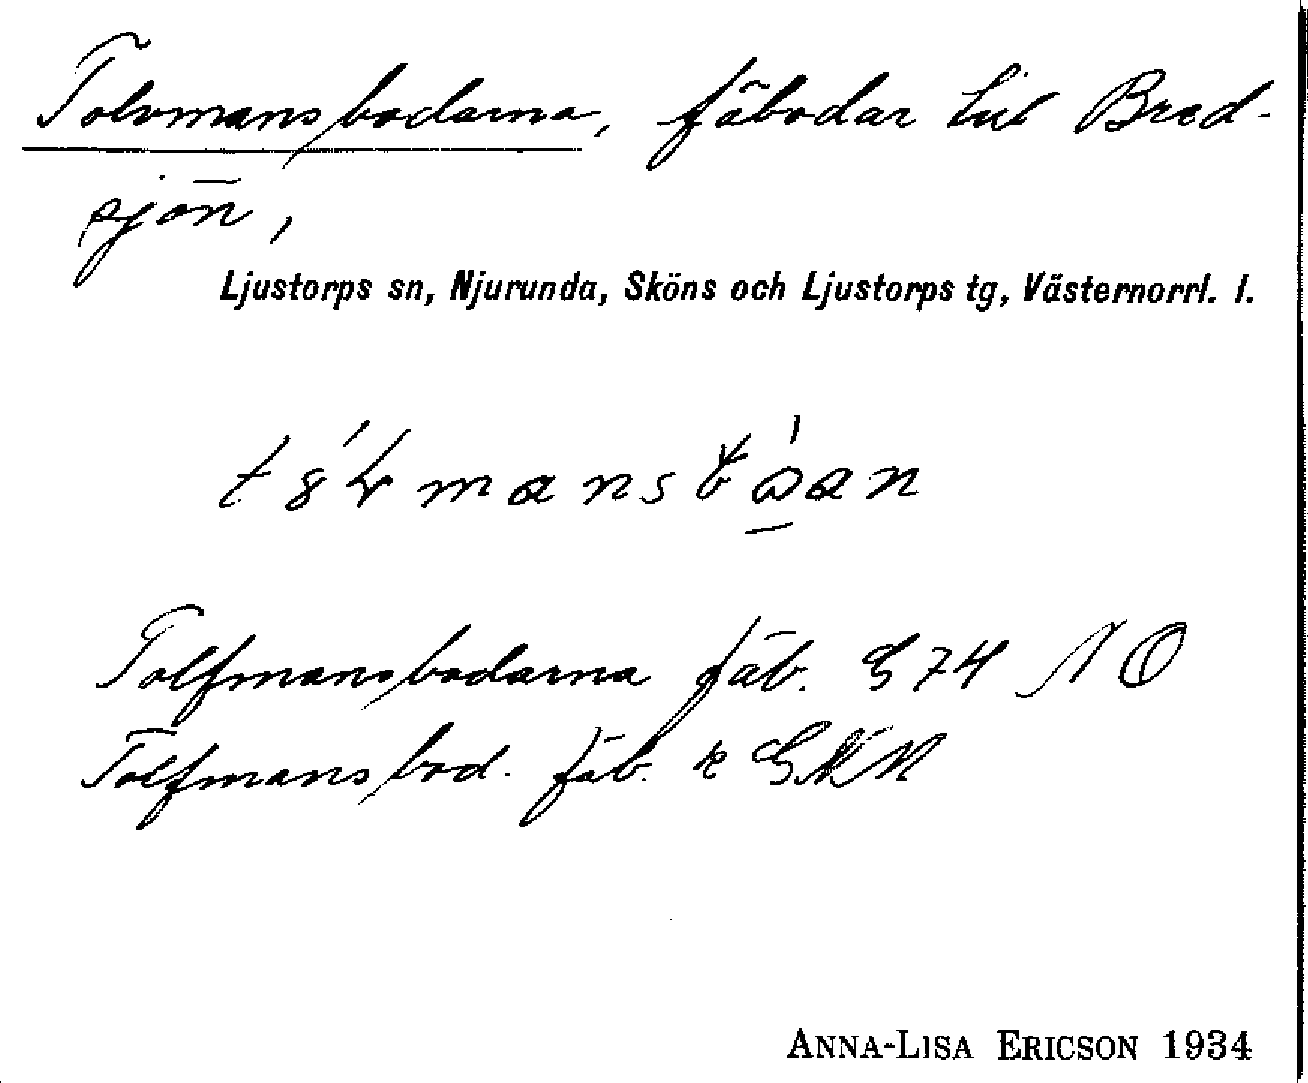 Tolvmansbodarna, fäbodar till Bred-
sjön,
Ljustorps sn, Njurunda, Sköns och Ljustorps tg, Västernorrl. l.
Tolfmansbodarna fäb. G 74 NO
Tolfmansbod. fäb. k GKN
ANNA-LISA ERICSON 1934